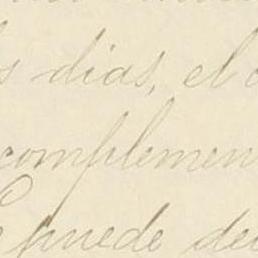 s dias, el
complemen
puede de